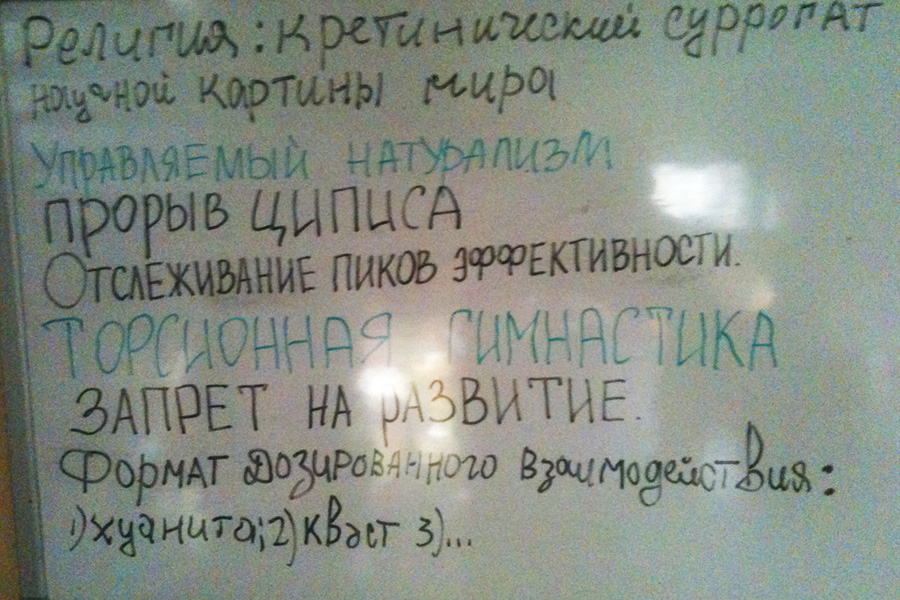 Религия: кретинический суррогат
научной картины мира
УПРАВЛЯЕМЫЙ НАТУРАЛИЗМ
ПРОРЫВ ЦИПИСА
ОТСЛЕЖИВАНИЕ ПИКОВ ЭФФЕКТИВНОСТИ.
ТОРСИОННАЯ ГИМНАСТИКА
ЗАПРЕТ НА РАЗВИТИЕ.
ФОРМАТ ДОЗИРОВАННОГО Взаимодействия:
1) хуанита; 2) кваст 3)...